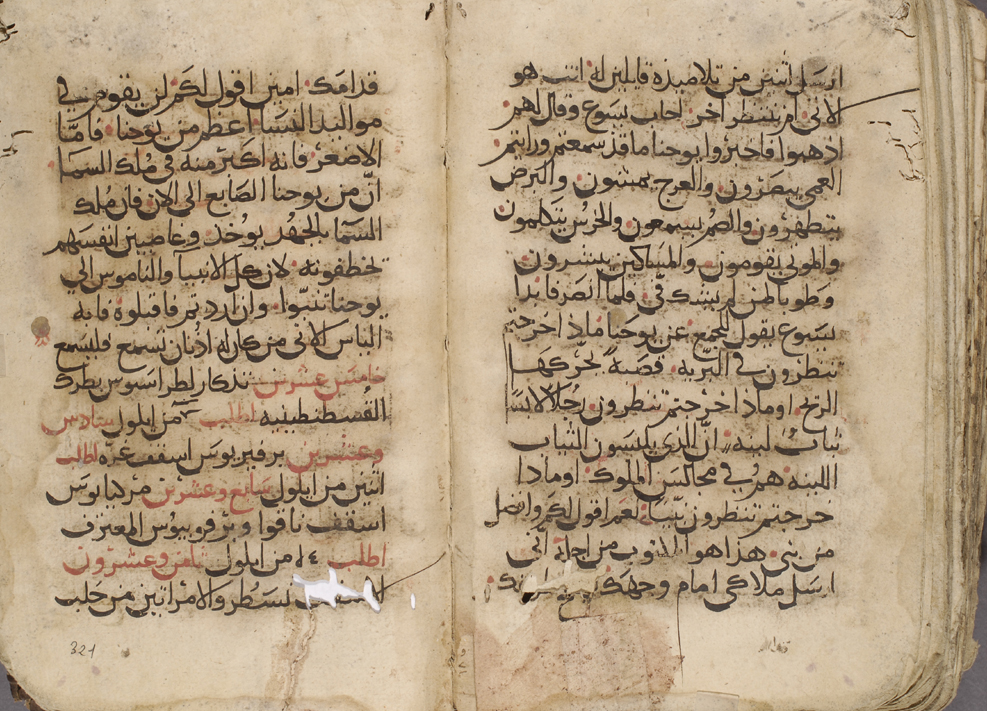 ارسل اثنين من تلاميذه قايلين له انت هو
الاتي ام ننتظر اخر اجاب يسوع وقال لهم
اذهبوا فاخبروا يوحنا ما قد سمعتم ورايتم
العمي يبصرون والعرج يمشون والبرص
يتطهرون والصم يسمعون والخرس يتكلمون
والموتى يقومون والمساكين يبشرون
وطوبا لمن لم يشك في فلما انصرفا بدا
يسوع يقول للجمع عن يوحنا ماذا خرجتم
تنظرون في البريه قصبة تحركها
الريح او ماذا خرجتم تنظرون رجلا لابسا
ثياب لينه ان الذي يلبسون الثياب
اللينه هم في مجالس الملوك او ماذا
خرجتم تنظرون نبيا نعم اقول لكم وافضل
من نبي هذا هو المكتوب من اجله اني
ارسل ملاكي امام وجهك
قدامك امين اقول لكم لن يقوم في
مواليد النسا اعظم من يوحنا فاما
الاصغر فانه اكثر منه في ملك السما
ان من يوحنا الصابغ الى الان فان ملك
السما بالجهد يوخذ وغاصبين انفسهم
تخطفونه لان كل الانبيا والناموس الى
يوحنا تنبوا وان اردتم فاقبلوه فانه
الياس الاتي من كان له اذنان تسمع فليسمع
خامس عشرين تذكار لطراسيوس بطرك
القسطنطينيه اطلب من ايلول سادس
وعشرين برفيريوس اسقف غزه اطلب
اثنين من ايلول سابع وعشرين
اسقف المعترف
اطلب ١٤ من ايلول ثامن وعشرون
نسطر والامراتين من حلب
321